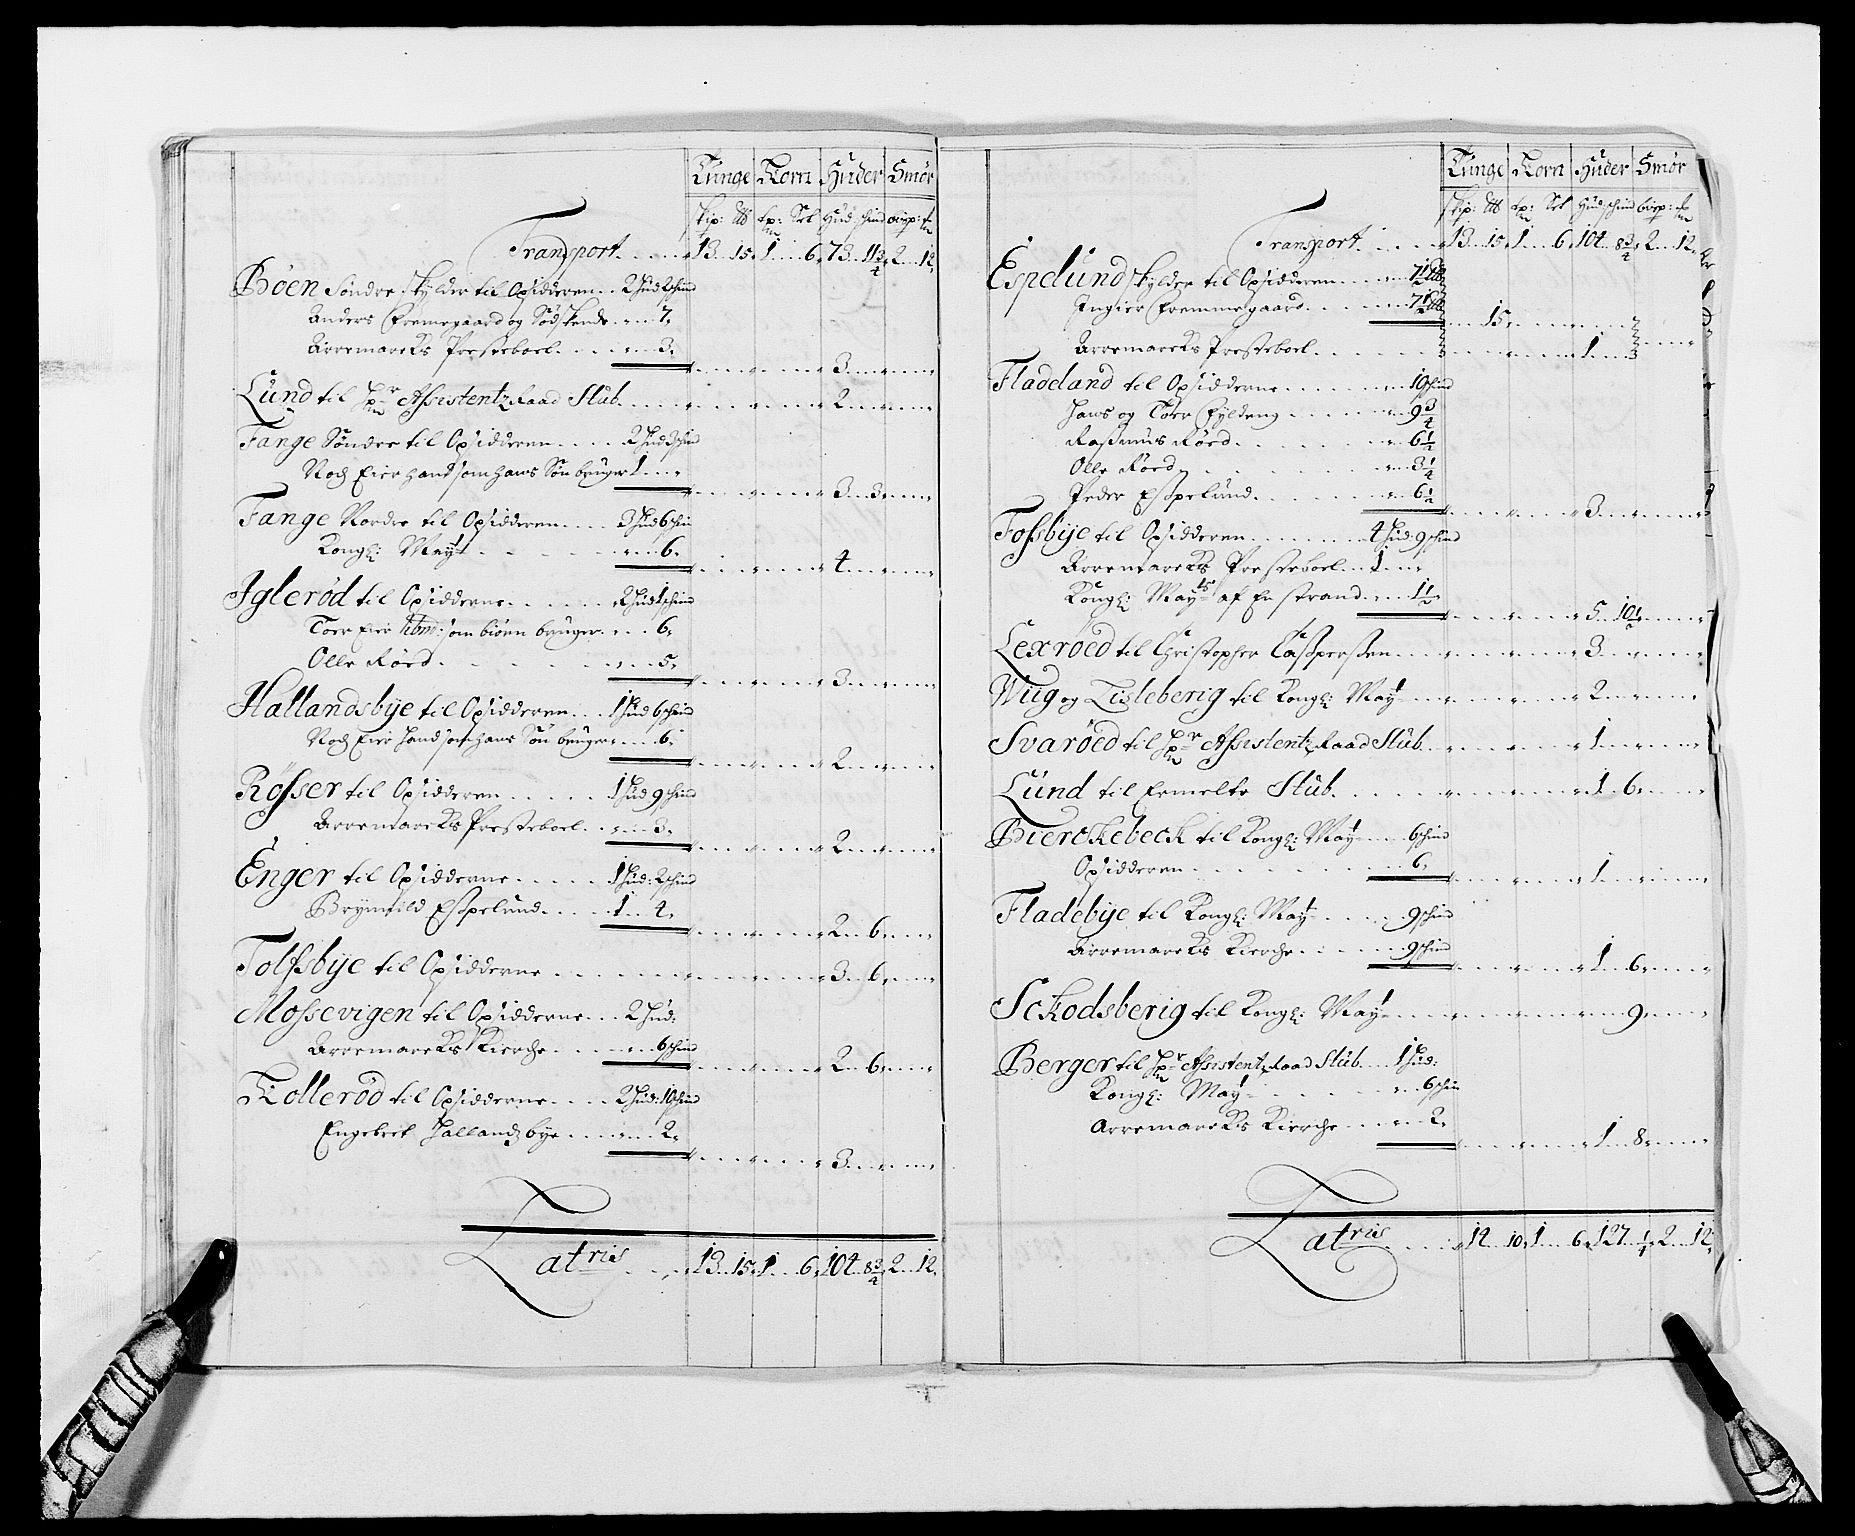 Tunge Korn Huder Smör
skip: ℔ tp: Set Hud schind bisp:
Transport . . . 13 . . 15 . 1 . . . 6 . 73 . 11 3/4 . 2 . . 12.
Böen Söndre skylder til Opsidderen . . 2 Hud 2 schind
Anders Fremegaard og Södskende . . 7.
Arremarcks Presteboel . . . . 3. 3
Lund til Hr Assistentz Raad Stub . . . 2
Tange Sönder til Opsidderen . . . . 2 Hud 3 schind
Noch Eier hand som hans Sön bruger 1 . . . 3 . . 3
Tange Nordre til Opsidderen . . . 3 Hud 6 schin
Kongl: Mayt . . . . . 6. 4
Iglerød til Opsidderne . . . . . 2 Hud 1 schind
Toer Eier som biörn bruger . . . 6.
Olle Röed . . . . . . 5. 3
Hallandsbye til Opsidderen . . . 1 Hud 6 schind
Noch Eier Hand som hans Sön bruger . . . 6. 2
Rösser til Opsidderen . . . . . 1 Hud 9 schind
Arremarcks Presteboel . . . 3. 2
Enger til Opsidderne . . . . . 1 Hud: 2 schind
Brynnild Espelund . . . . 1 . . 4. 2 . . 6.
Tolfsbye til Opsidderne . . . . . . 3 . . 6.
Mossevigen til Opsidderne . . . 2 Hud:
Arremarcks Kierche . . . . . . 6 schind 2 . . 6.
Kollerød til Opsidderne . . . . 2 Hud: 10 schind
Engebret Hallandzbye . . . . . 2. 3
Latris . . . 13 . . 15 . 1 . . . 6 . 104 . . 8 3/4 . 2 . . 12.
Tunge Korn Huder Smör
skip: ℔ tp: Set Hud schind bisp:
Transport . . . . . 13 . . 15 . 1 . . . 6 . 104 . . 8 3/4 . 2 . . 12.
Espelund skylder til Opsidderen . . . . 7 1/2 ℔
Ingier Fremmegaard . . . . . . 7 1/2 ℔ 15.
Arremarcks Presteboel . . . . . . 1
Fladeland til Opsidderne . . . . . . 10 schind
Hans og Toer Eylden . . . . . 9 3/4
Rasmus Röed . . . . . . . 6 1/2
Olle Röed . . . . . . . 3 1/4
Peder Espelund . . . . . . 6 1/2 3
Fossbye til Opsidderen . . . . . . 4 Hud: 9 schind
Arremarcks Presteboel . . 1 . . .
Kongl: Mayts af Enstrand . . . 1 1/2. 5 . . 10 1/2
Lexröed til Christopher Caspersen . . . 3
Wug og Lisleberig til Kongl: May . . . 2
Svaröed til Hr Assistentz Raad Stub . . . 1
Lund til Ermelte Stub . . . . . . 1 . . 6.
Bierckebeck til Kongl: May . . . . 6 schind
Opsidderen . . . . . . 6. 1
Fladebye til Kongl: May . . . . 9 schind
Arremarcks Kierche . . . . . 9 schind 1 . . 6.
Sckodsberig til Kongl: May . . . 9.
Berger til Hr Assistentz Raad Stub . . . 1 Hud:
Kongl: May . . . . . . 6 schin
Arremarcks Kierche . . . . . 2. 1 . . 8.
Latris . . . . . 14 . . 10 . 1 . . . 6 . 127 . . 1/4 . 2 . . 12.